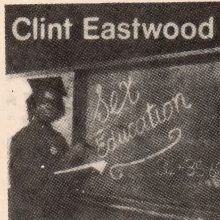 Clint Eastwood
Sex
Education